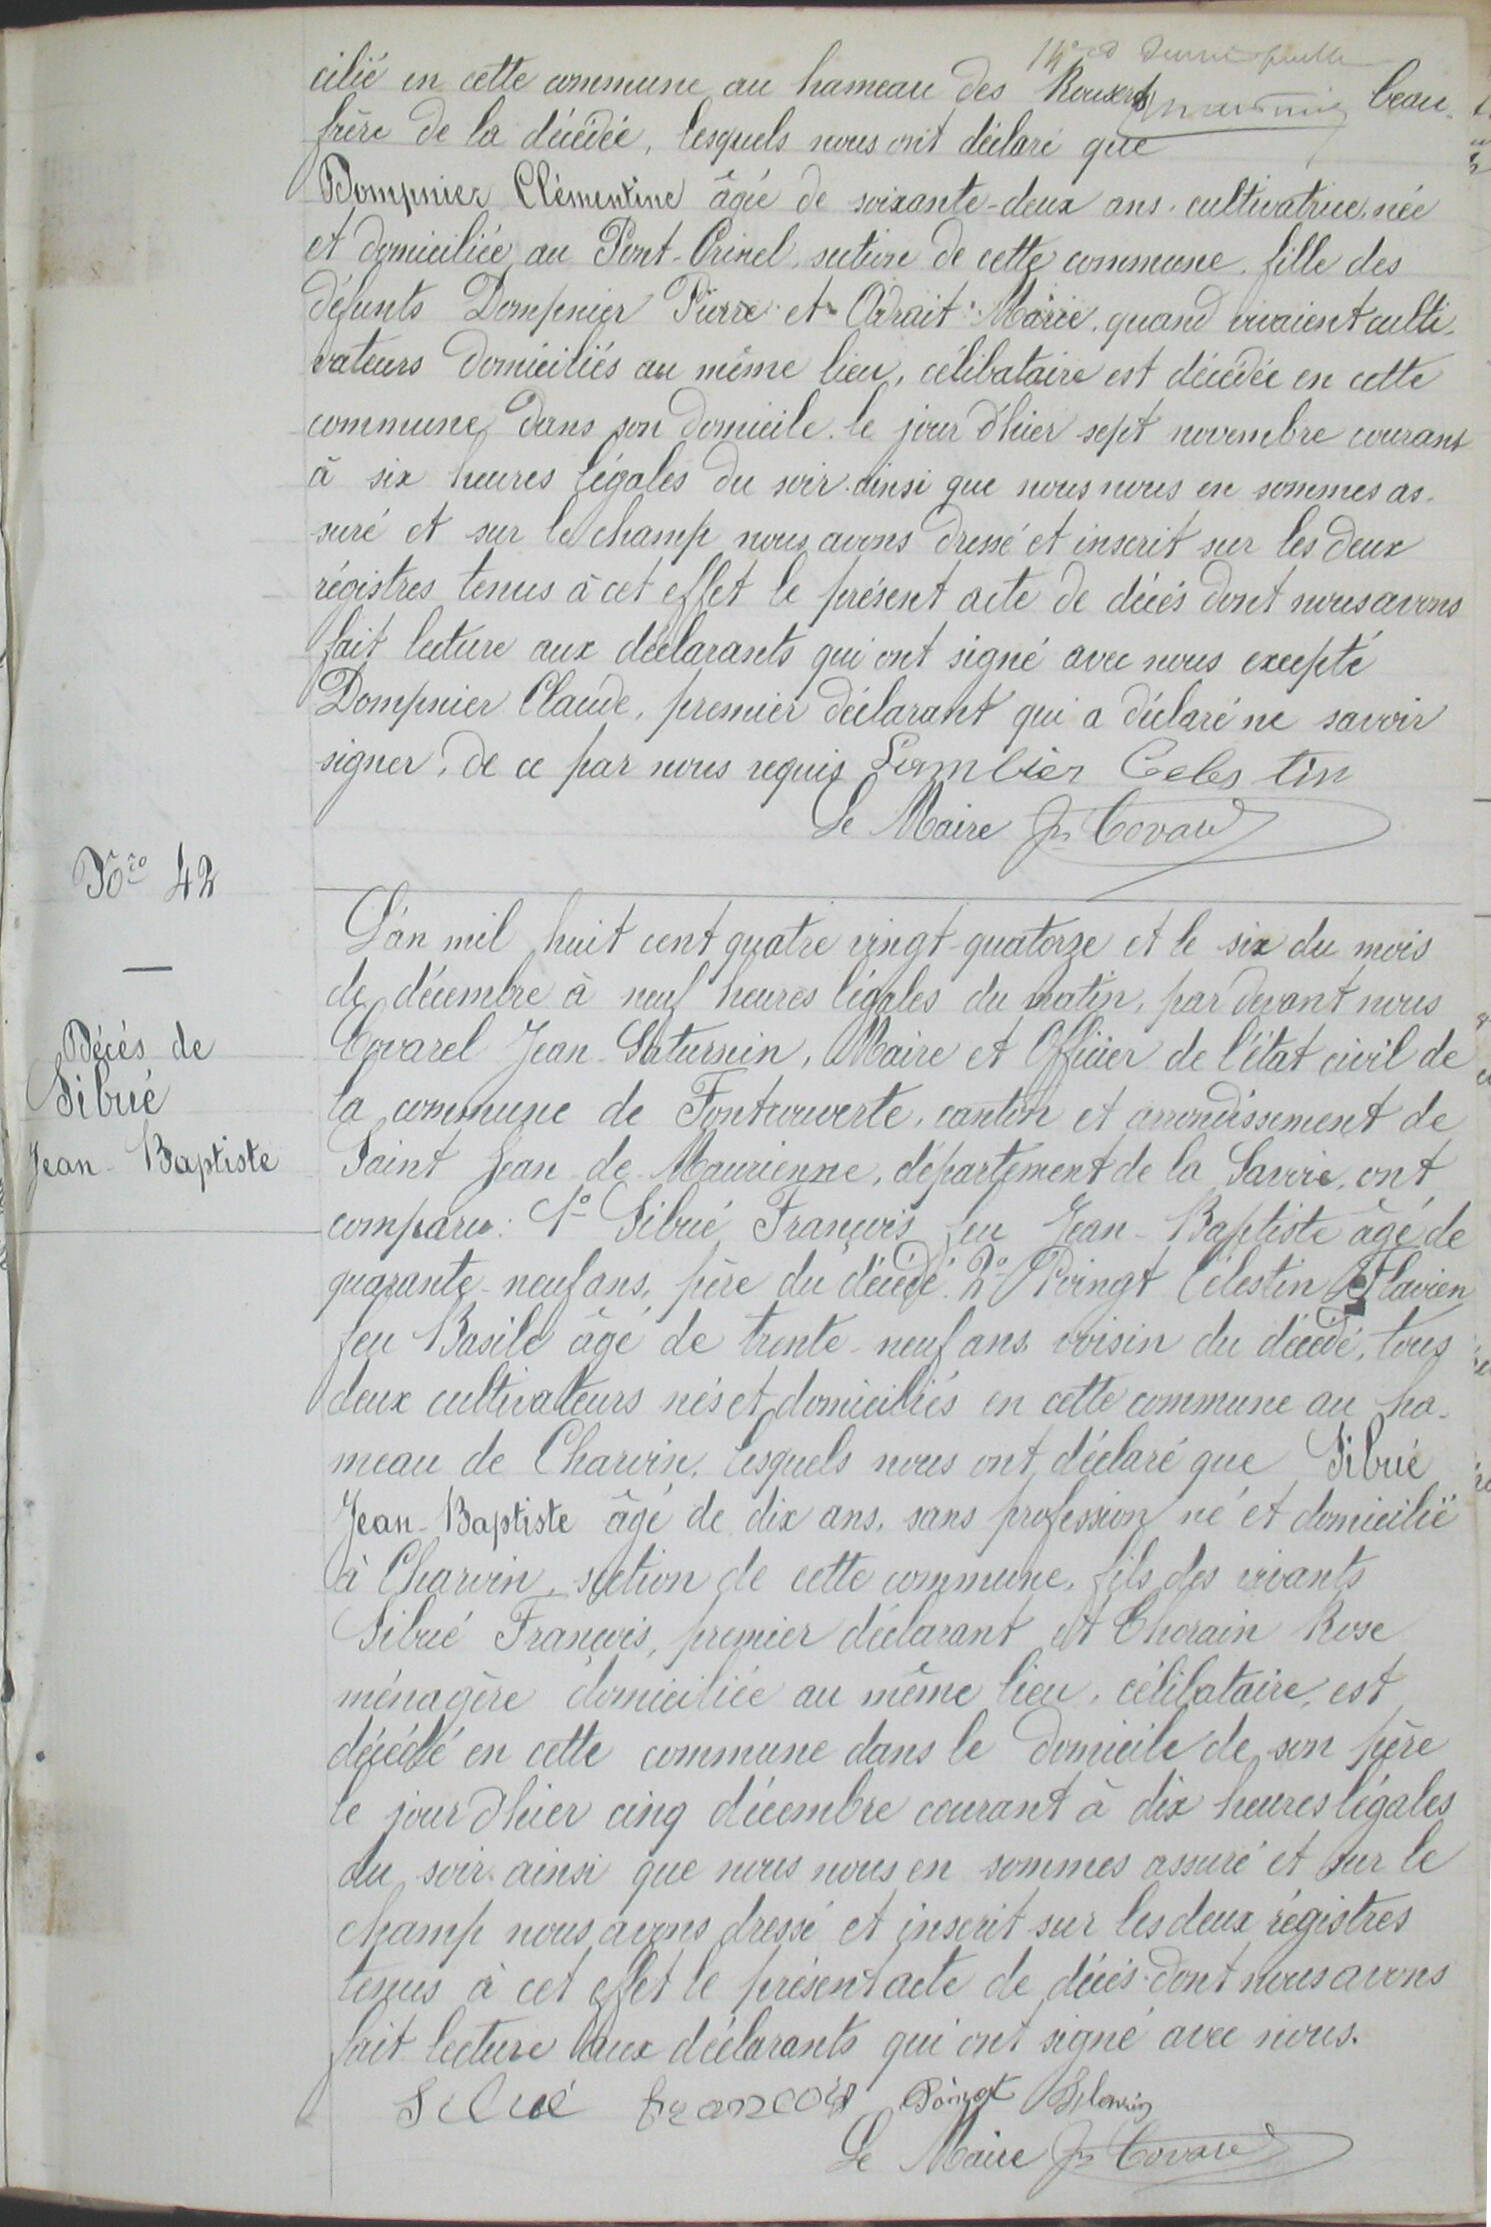 14e et dernier feuillet
cilié en cette commune au hameau des Rouxers beau-
frère de la décédée, lesquels nous ont déclaré que
Dompnier Clémentine âgée de soixante-deux ans, cultivatrice, née
et domiciliée au Pont-Crinel, section de cette commune, fille des
défunts Dompnier Pierre et Marie, quand vivaient culti-
vateurs domiciliés au même lieu, célibataire est décédée en cette
commune dans son domicile le jour d'hier sept novembre courant
à six heures légales du soir ainsi que nous nous en sommes as-
suré et sur le champ nous avons dressé et inscrit sur les deux
régistres tenus à cet effet le présent acte de décés dont nous avons
fait lecture aux déclarants qui ont signé avec nous excepté
Dompnier Claude, premier déclarant qui a déclaré ne savoir
signer, de ce par nous requis Sambier Celestin
Le Maire Jn Covarel
No 42
Décés de
Sibué
Jean-Baptiste
L'an mil huit cent quatre vingt-quatorze et le six du mois
de décembre à neuf heures légales du matin, par devant nous
Covarel Jean-Saturnin, Maire et Officier de l'état civil de
la commune de Fontcouverte, canton et arrondissement de
Saint Jean-de-Maurienne, département de la Savoie, ont
comparu: 1o Sibué François feu Jean-Baptiste âgé de
quarante-neuf ans, père du décédé. 2o Poingt Célestin Flavien
feu Basile âgé de trente-neuf ans voisin du décédé, tous
deux cultivateurs nés et domiciliés en cette commune au ha-
meau de Charvin, lesquels nous ont déclaré que Sibué
Jean-Baptiste âgé de dix ans, sans profession né et domicilié
à Charvin, section de cette commune, fils des vivants
Sibué François, premier déclarant et Chorain Rose
ménagère domiciliée au même lieu, célibataire, est
décédé en cette commune dans le domicile de son père
le jour d'hier cinq décembre courant à dix heures légales
du soir ainsi que nous nous en sommes assuré et sur le
champ nous avons dressé et inscrit sur les deux régistres
tenus à cet effet le présent acte de décés dont nous avons
fait lecture aux déclarants qui ont signé avec nous.
Sibué francois Poingt Flavin
Le Maire Jn Covarel